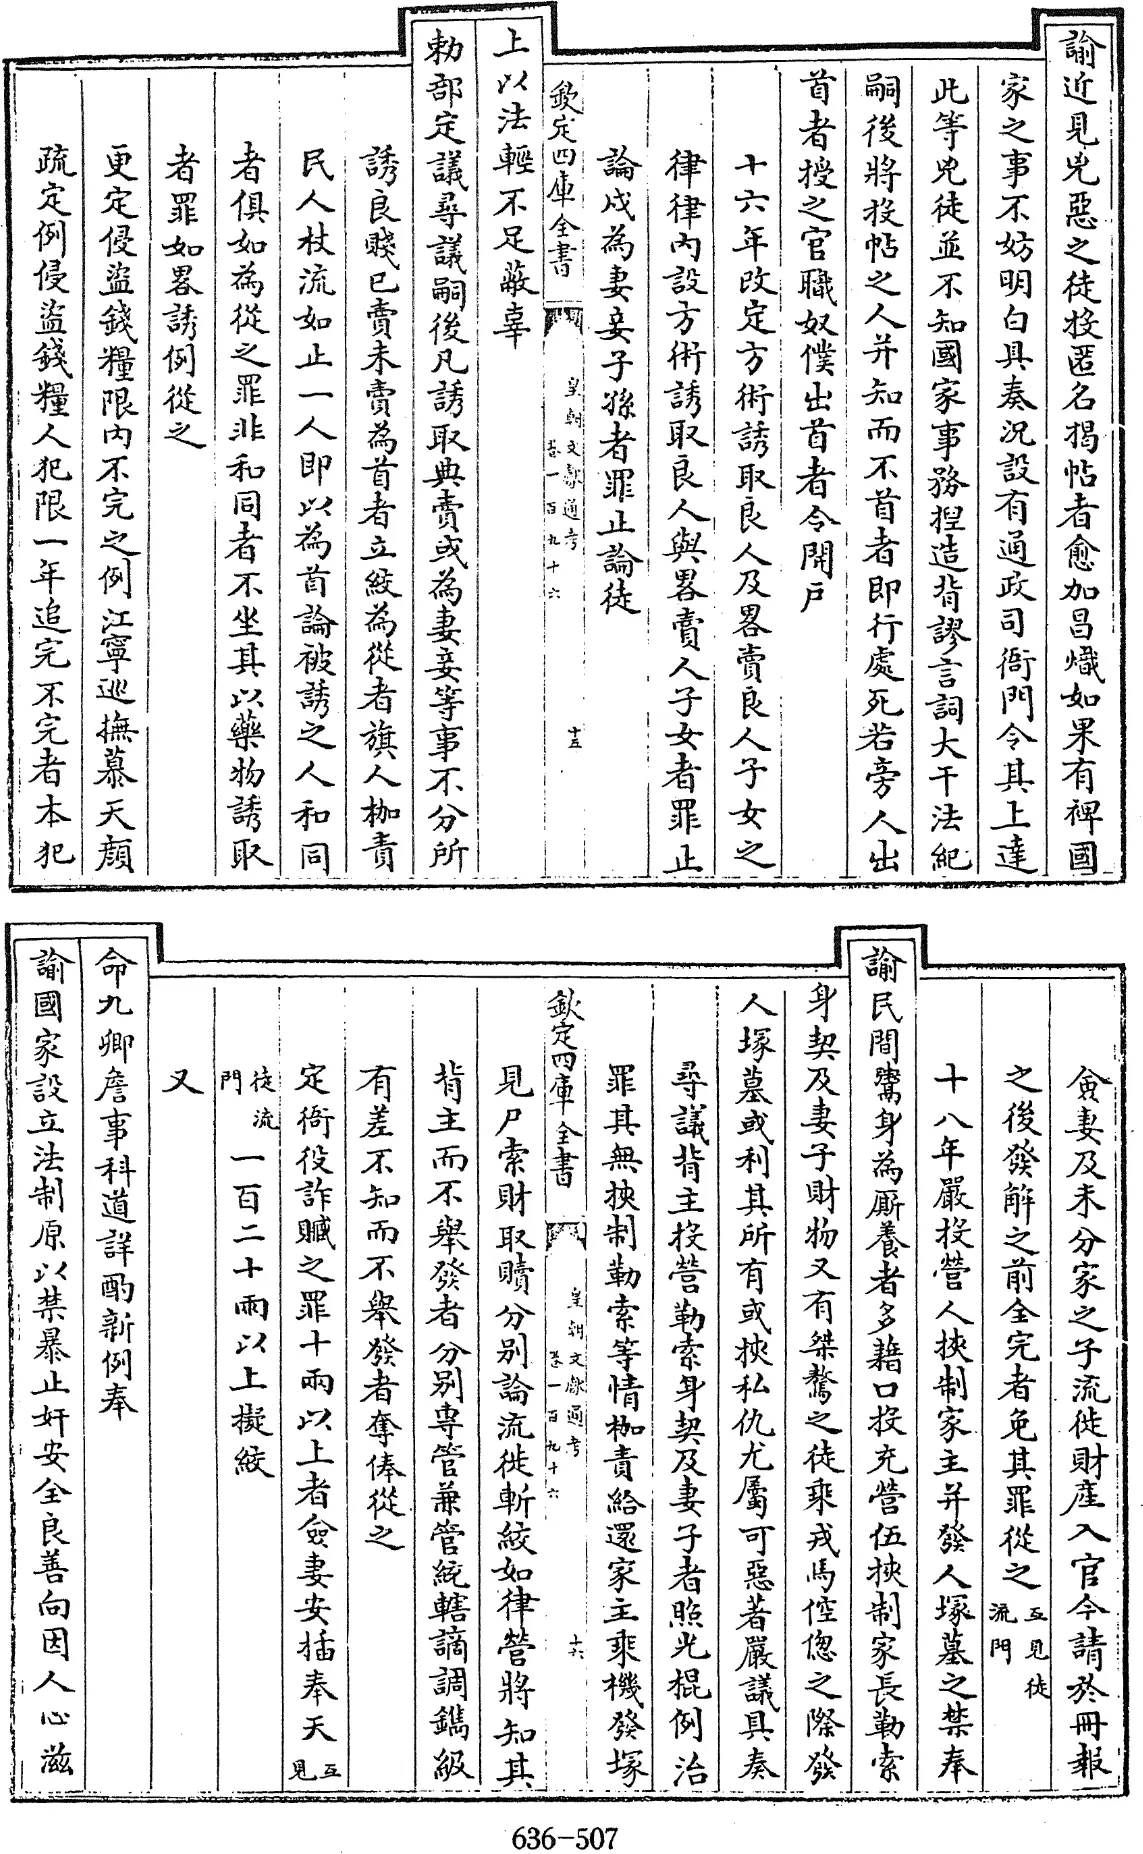 諭近見兇惡之徒投匿名揭帖者愈加昌熾如果有裨國
家之事不妨明白具奏況設有通政司衙門令其上達
此等兇徒並不知國家事務揑造背謬言詞大干法紀
嗣後將投帖之人并知而不首者即行處死若旁人出
首者授之官職奴僕出首者令開戶
十六年改定方術誘取良人及畧賣良人子女之
律律內設方術誘取良人與畧賣人子女者罪止
論戍為妻妾子孫者罪止論徒
欽定四庫全書
皇朝文獻通考
卷一百九十六
十五
上以法輕不足蔽辜
勅部定議尋議嗣後凡誘取典賣或為妻妾等事不分所
誘良賤已賣未賣為首者立絞為從者旗人枷責
民人杖流如止一人即以為首論被誘之人和同
者俱如為從之罪非和同者不坐其以藥物誘取
者罪如畧誘例從之
更定侵盜錢糧限內不完之例江寧巡撫慕天顔
疏定例侵盜錢糧人犯限一年追完不完者本犯
僉妻及未分家之子流徙財產入官今請於冊報
之後發解之前全完者免其罪從之互見徒
流門
十八年嚴投營人挾制家主并發人塚墓之禁奉
諭民間鬻身為厮養者多藉口投充營伍挾制家長勒索
身契及妻子財物又有桀驁之徒乘戎馬倥傯之際發
人塚墓或利其所有或挾私仇尤屬可惡著嚴議具奏
尋議背主投營勒索身契及妻子者照光棍例治
罪其無挾制勒索等情枷責給還家主乘機發塚
欽定四庫全書
皇朝文獻通考
卷一百九十六
十六
見尸索財取贖分別論流徙斬絞如律營將知其
背主而不舉發者分別專管兼管統轄謫調鐫級
有差不知而不舉發者奪俸從之
定衙役詐贓之罪十兩以上者僉妻安插奉天互
見
徒流
門一百二十兩以上擬絞
又
命九卿詹事科道詳酌新例奉
諭國家設立法制原以禁暴止奸安全良善向因人心滋
636-507